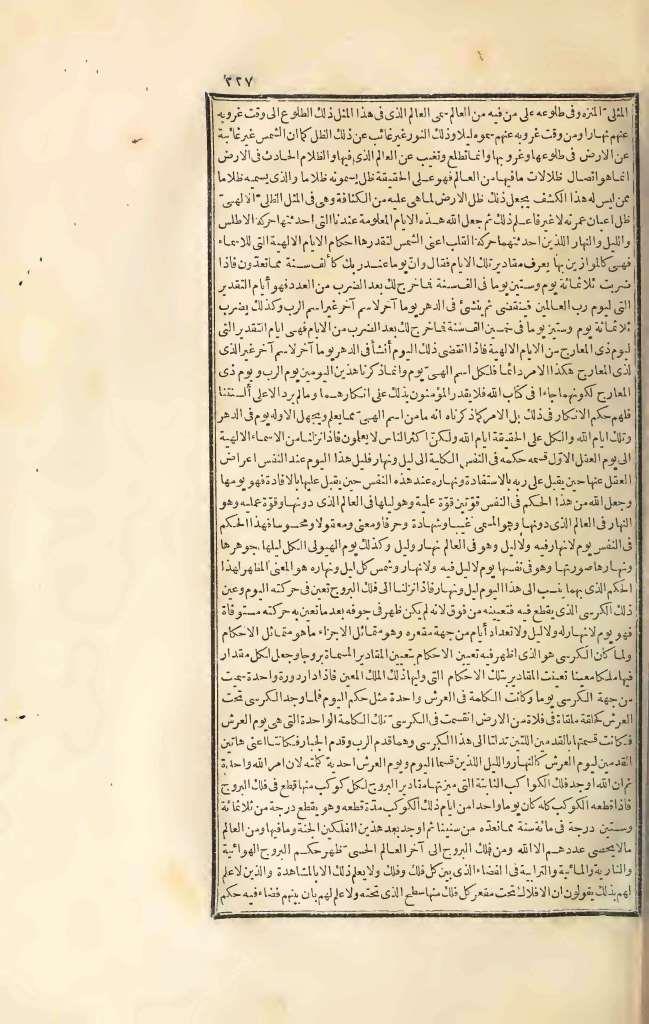 ٣٢٧
المثلى المنزه وفى طلوعه على من فيه من العالم سمى العالم الذى فى هذا المثل ذلك الطلوع الى وقت غروبه
عنهم نهارا ومن وقت غروبه عنهم سموه ليلا وذلك النور غير غائب عن ذلك الظل كما ان الشمس غير غائبة
عن الارض فى طلوعها وغروبها وانما تطلع وتغيب عن العالم الذى فيها والظلام الحادث فى الارض
انما هو اتصال ظلالات ما فيها من العالم فهو على الحقيقة ظل يسمونه ظلاما والذى يسميه ظلاما
ممن ليس له هذا الكشف يجعل ذلك ظل الارض لما هى عليه من الكثافة وهى فى المثل الظلى الالهى
ظل اعيان عمرته لا غير فاعلم ذلك ثم جعل الله هذه الايام المعلومة عندنا التى احدثتها حركة الاطلس
والليل والنهار اللذين احدثتهما حركة القلب اعنى الشمس لتقدر بها احكام الايام الالهية التى للاسماء
فهى كالموازين بها يعرف مقادير تلك الايام فقال وان يوما عند ربك كألف سنة مما تعدون فاذا
ضربت ثلثمائة يوم وستين يوما فى الف سنة فما خرج لك بعد الضرب من العدد فهو أيام التقدير
التى ليوم رب العالمين فينقضى ثم ينشئ فى الدهر يوما آخر لاسم آخر غير اسم الرب وكذلك يضرب
ثلاثمائة يوم وستين يوما فى خمسين الف سنة فما خرج لك بعد الضرب من الايام فهى ايام التقدير التى
ليوم ذى المعارج من الايام الالهية فاذا انقضى ذلك اليوم أنشأ فى الدهر يوما آخر لاسم آخر غير الذى
لذى المعارج هكذا الامر دائما فلكل اسم الهى يوم وانما ذكرنا هذين اليومين يوم الرب ويوم ذى
المعارج لكونهما جاءا فى كتاب الله فلا يقدر المؤمنون بذلك على انكارهما وما لم يرد الا على ألسنتنا
فلهم حكم الانكار فى ذلك بل الامر كما ذكرناه انه ما من اسم الهى مما يعلم ويجهل الا وله يوم فى الدهر
وتلك ايام الله والكل على الحقيقة ايام الله ولكن اكثر الناس لا يعلمون فاذا نزلنا من الاسماء الالهية
الى يوم العقل الاول قسمه حكمه فى النفس الكلية الى ليل ونهار فليل هذا اليوم عند النفس اعراض
العقل عنها حين يقبل على ربه بالاستفادة ونهاره عند هذه النفس حين يقبل عليها بالافادة فهو يومها
وجعل الله من هذا الحكم فى النفس قوتين قوة علمية وهو ليلها فى العالم الذى دونها وقوة عملية وهو
النهار فى العالم الذى دونها وهو المسمى غيبا وشهادة وحرفا ومعنى ومعقولا ومحسوسا فهذا الحكم
فى النفس يوم لا نهار فيه ولا ليل وهو فى العالم نهار وليل وكذلك يوم الهيولى الكل ليلها جوهرها
ونهارها صورتها وهو فى نفسها يوم لا ليل فيه ولا نهار وشمس كل ليل ونهاره هو المعنى المظهر لهذا
الحكم الذى بهما ينسب الى هذا اليوم ليل ونهار فاذا نزلنا الى فلك البروج تعين فى حركته اليوم وعين
ذلك الكرسى الذى يقطع فيه فتعيينه من فوق لانه لم يكن ظهر فى جوفه بعد ما تعين به حركته مستوفاة
فهو يوم لا نهار له ولا ليل ولا تعداد أيام من جهة مقعره وهو متماثل الاجزاء ما هو متماثل الاحكام
ولما كان الكرسى هو الذى اظهر فيه تعيين الاحكام بتعيين المقادير المسماة بروجا وجعل لكل مقدار
فيها ملكا معينا تعينت المقادير بتلك الاحكام التى وليها ذلك الملك المعين فاذا دار دورة واحدة سميت
من جهة الكرسى يوما وكانت الكلمة فى العرش واحدة مثل حكم اليوم فلما اوجد الكرسى تحت
العرش كحلقة ملقاة فى فلاة من الارض انقسمت فى الكرسى تلك الكلمة الواحدة التى هى يوم العرش
فكانت قسمتها بالقدمين اللتين تدلتا الى هذا الكرسى وهما قدم الرب وقدم الجبار فكانتا اعنى هاتين
القدمين ليوم العرش كالنهار والليل اللذين قسما اليوم ويوم العرش احدية كلمته لان امر الله واحدة
ثم ان الله اوجد فلك الكواكب الثابتة التى ميزتها مقادير البروج لكل كوكب منها قطع فى فلك البروج
فاذا قطعه الكوكب كله كان يوما واحدا من ايام ذلك الكوكب مدة قطعه وهو يقطع درجة من ثلاثمائة
وستين درجة فى مائة سنة مما تعده من سنينا ثم اوجد بعد هذين الفلكين الجنة وما فيها ومن العالم
ما لا يحصى عددهم الا الله ومن فلك البروج الى آخر العالم الحسى ظهر حكم البروج الهوائية
والنارية والمائية والترابية فى الفضاء الذى بين كل فلك وفلك ولا يعلم ذلك الا بالمشاهدة والذين لا علم
لهم بذلك يقولون ان الافلاك تحت مقعر كل فلك منها سطح الذى تحته ولا علم لهم بان بينهم فضاء فيه حكم